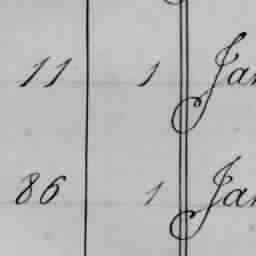 11 1 Jan
86 1 Jan